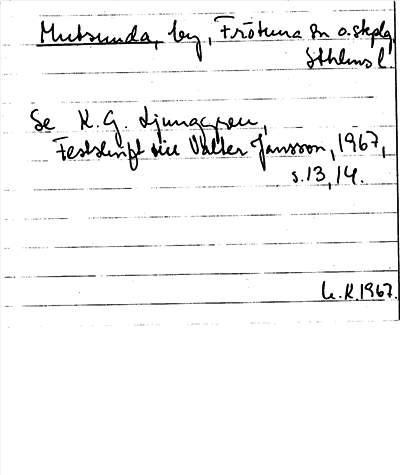 Mutsunda, by, Frötuna sn o. skplg,
Sthlms l.
Se K. G. Ljunggren,
Festskrift till Valter Jansson, 1967,
s. 13, 14.
L. K. 1967.